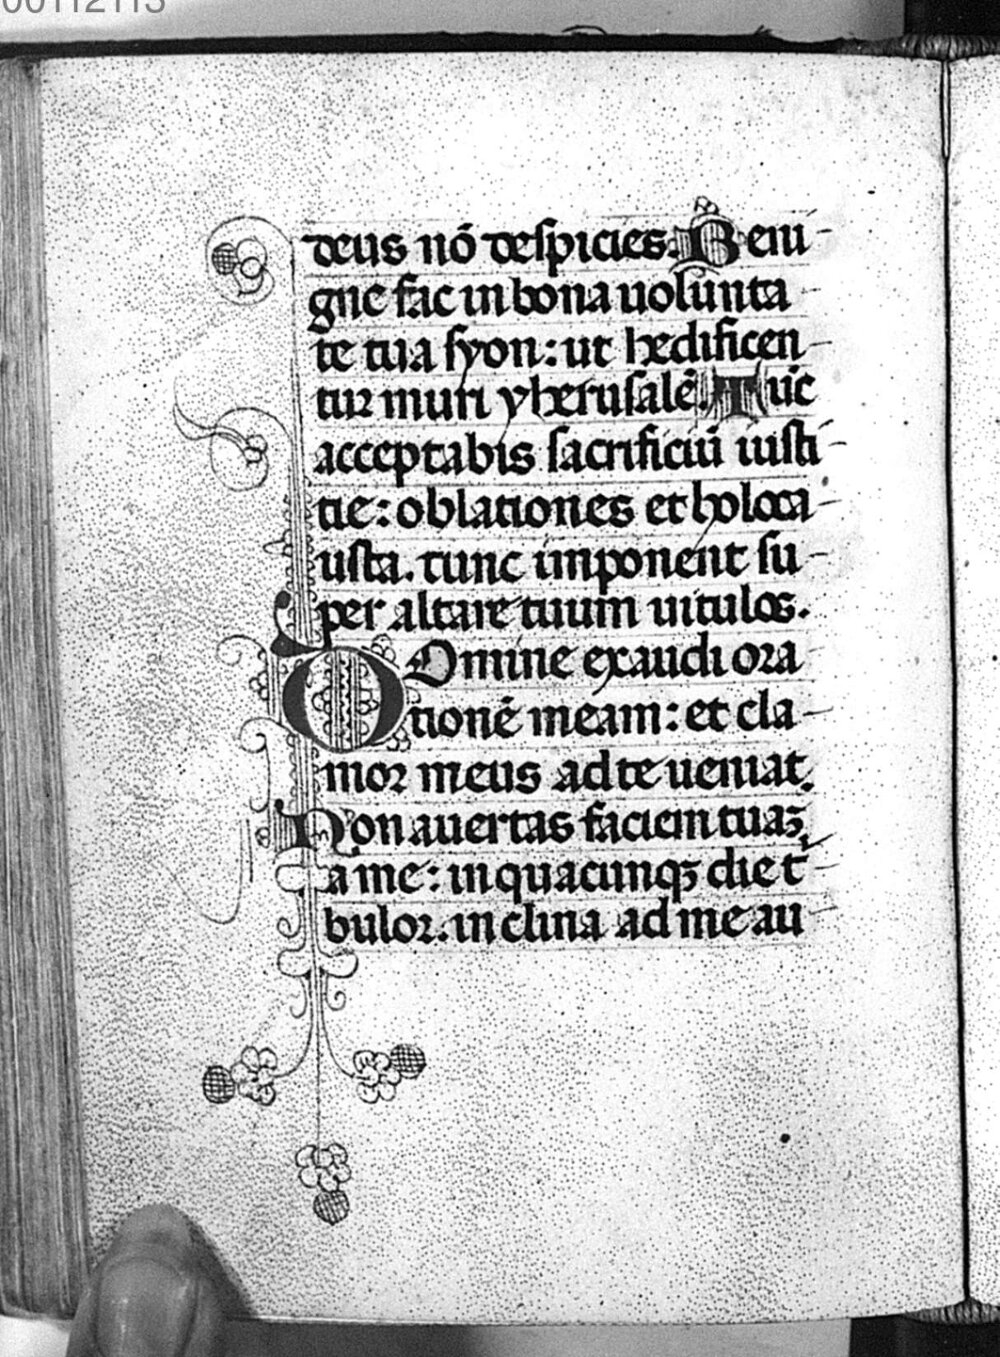 00112113
deus nō despicies. Beni
gne fac in bona uolunta
te tua syon: ut hedificen
tur muri yherusalē. Tūc
acceptabis sacrificiū iusti
tie: oblationes et holoca
usta. tunc imponent su
per altare tuum uitulos.
Domine exaudi ora
tionē meam: et cla
mor meus ad te ueniat.
Non auertas faciem tuaꝫ
a me: in quacumqꝫ die t̄
bulor. inclina ad me au